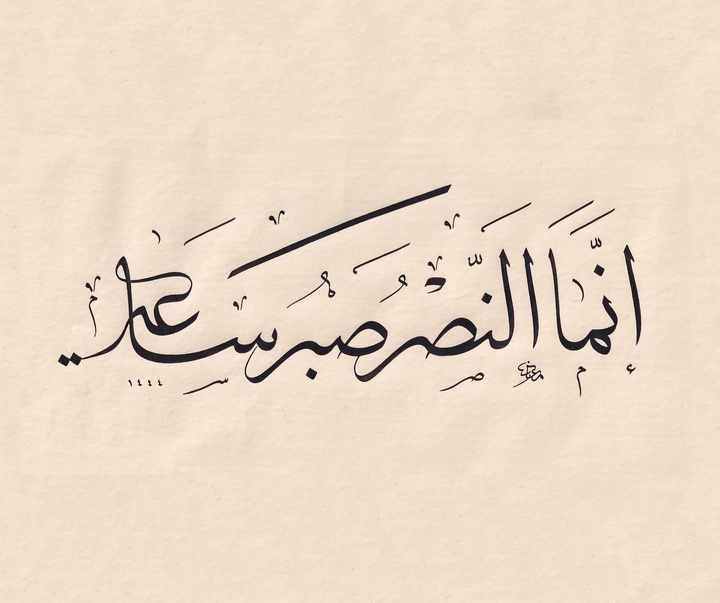 إنَّمَا النَّصْرُ صَبْرُ سَاعَة
١٤٤٤